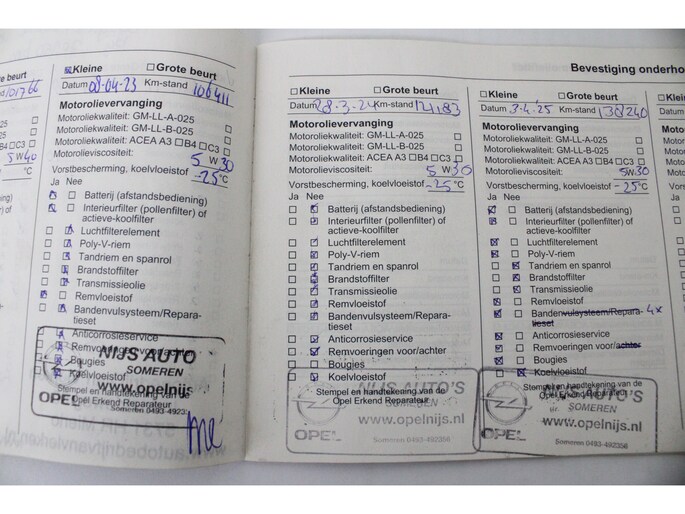 Kleine Grote beurt
Datum 08-04-23 Km-stand 106411
Motorolievervanging
Motorkwaliteit: GM-LL-A-025
Motorkwaliteit: GM-LL-B-025
Motoroliekwaliteit: ACEA A3 B4 C3
Motorolieviscositeit: 5 W 30
Vorstbescherming, koelvloeistof -25°C
Ja Nee
Batterij (afstandsbediening)
Interieurfilter (pollenfilter) of
actieve-koolfilter
Luchtfilterelement
Poly-V-riem
Tandriem en spanrol
Brandstoffilter
Transmissieolie
Remvloeistof
Bandenvulsysteem/Repara-
tieset
Anticorrosieservice
Remvoeringen
Bougies
Koelvloeistof
Stempel en handtekening van de
Opel Erkend Reparateur
NIJS AUTO
SOMEREN
www.opelnijs
OPEL
Someren 0493-4923
e beurt
101766
B4 C3
5 W 40
Kleine Grote beurt
Datum 28-3-24 Km-stand 121183
Motorolievervanging
Motoroliekwaliteit: GM-LL-A-025
Motoroliekwaliteit: GM-LL-B-025
Motoroliekwaliteit: ACEA A3 B4 C3
Motorolieviscositeit: 5 W 30
Vorstbescherming, koelvloeistof -25°C
Ja Nee
Batterij (afstandsbediening)
Interieurfilter (pollenfilter) of
actieve-koolfilter
Luchtfilterelement
Poly-V-riem
Tandriem en spanrol
Brandstoffilter
Transmissieolie
Remvloeistof
Bandenvulsysteem/Repara-
tieset
Anticorrosieservice
Remvoeringen voor/achter
Bougies
Koelvloeistof
Stempel en handtekening van de
Opel Erkend Reparateur
NIJS AUTO'S
SOMEREN
www.opelnijs.nl
OPEL
Someren 0493-492356
Bevestiging onderho
Kleine Grote beurt
Datum 3-4-'25 Km-stand 130240
Motorolievervanging
Motoroliekwaliteit: GM-LL-A-025
Motoroliekwaliteit: GM-LL-B-025
Motoroliekwaliteit: ACEA A3 B4 C3
Motorolieviscositeit: 5W30
Vorstbescherming, koelvloeistof -25°C
Ja Nee
Batterij (afstandsbediening)
Interieurfilter (pollenfilter) of
actieve-koolfilter
Luchtfilterelement
Poly-V-riem
Tandriem en spanrol
Brandstoffilter
Transmissieolie
Remvloeistof
Bandenvulsysteem/Repara- 4x
tieset
Anticorrosieservice
Remvoeringen voor/achter
Bougies
Koelvloeistof
Stempel en handtekening van de
Opel Erkend Reparateur
NIJS AUTO'S
SOMEREN
www.opelnijs.nl
OPEL
Someren 0493-492356